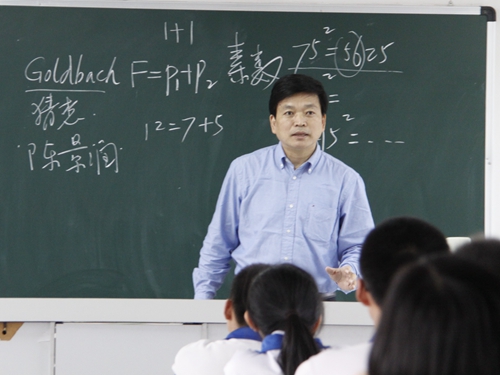 1+1
Goldbach F=P₁+P₂ 素数 75²=5625
猜想
12=7+5
陈景润
5²=---